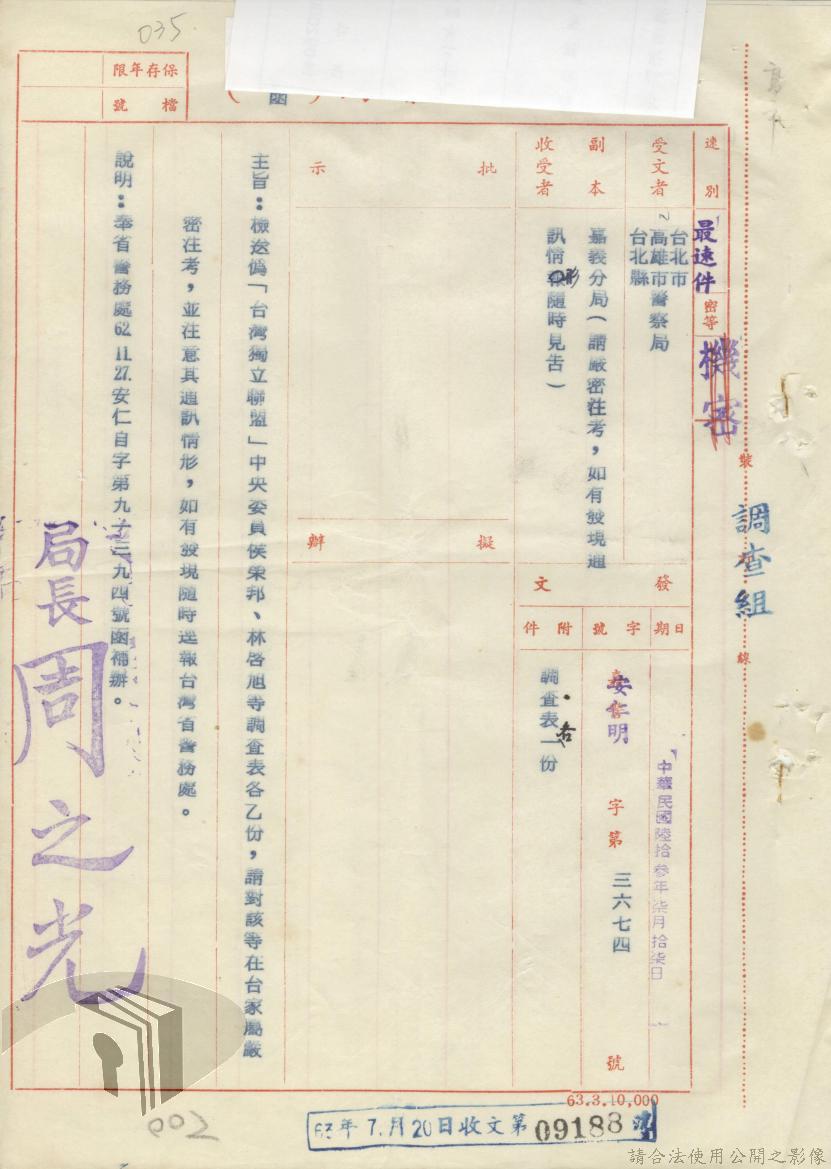 035
保存年限
檔號
（函）
速別
最速件
密等
機密
裝
線
調查組
受文者
台北市
高雄市警察局
台北縣
副本收受者
嘉義分局（請嚴密注考，如有發現通
訊情形隨時見告）
批示
擬辦
發文
日期
中華民國陸拾參年柒月拾柒日
字號
安仁明
字第
三六七四
號
附件
調查表各一份
主旨：檢送偽「台灣獨立聯盟」中央委員侯榮邦、林啓旭等調查表各乙份，請對該等在台家屬嚴
密注考，並注意其通訊情形，如有發現隨時逕報台灣省警務處。
說明：奉省警務處62.11.27.安仁自字第九三九四號函補辦。
局長周之光
63.3.10,000
63年7月20日收文第09188
002
請合法使用公開之影像